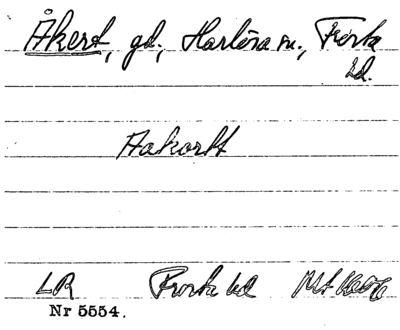 Åkert, gd, Harlösa sn., Frosta
hd.
Aakortt
LR Frosta hd
Nr 5554.